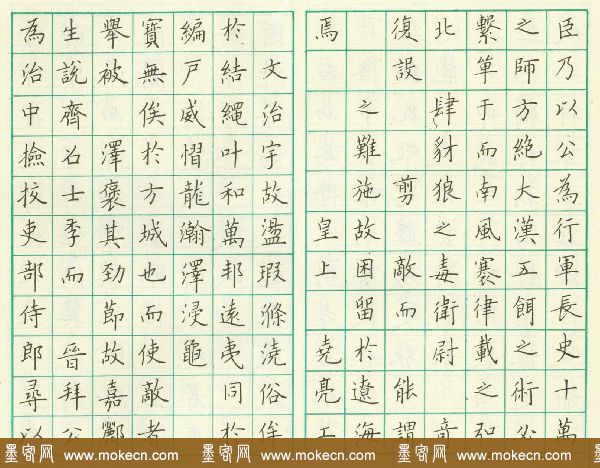 臣乃以公為行軍長史十萬
之師方絕大漢五餌之術
繫單于而南風寨律載之
北肆豺狼之毒衛尉
復設剪敵而能謂
之難施故困留於遼海
焉皇上堯亮工
文治宇故盪瑕滌澆俗俟
於結繩叶和萬邦遠夷同於
編戶威慴龍瀚澤浸龜
寶無俟於方城也而使敵者
舉被澤褒其勁節故嘉酈
生說齊名士季而晉拜公
為治中撿挍吏部侍郎尋以
墨客网 www.mokecn.com 墨客网 www.mokecn.com 墨客网 www.mokecn.com